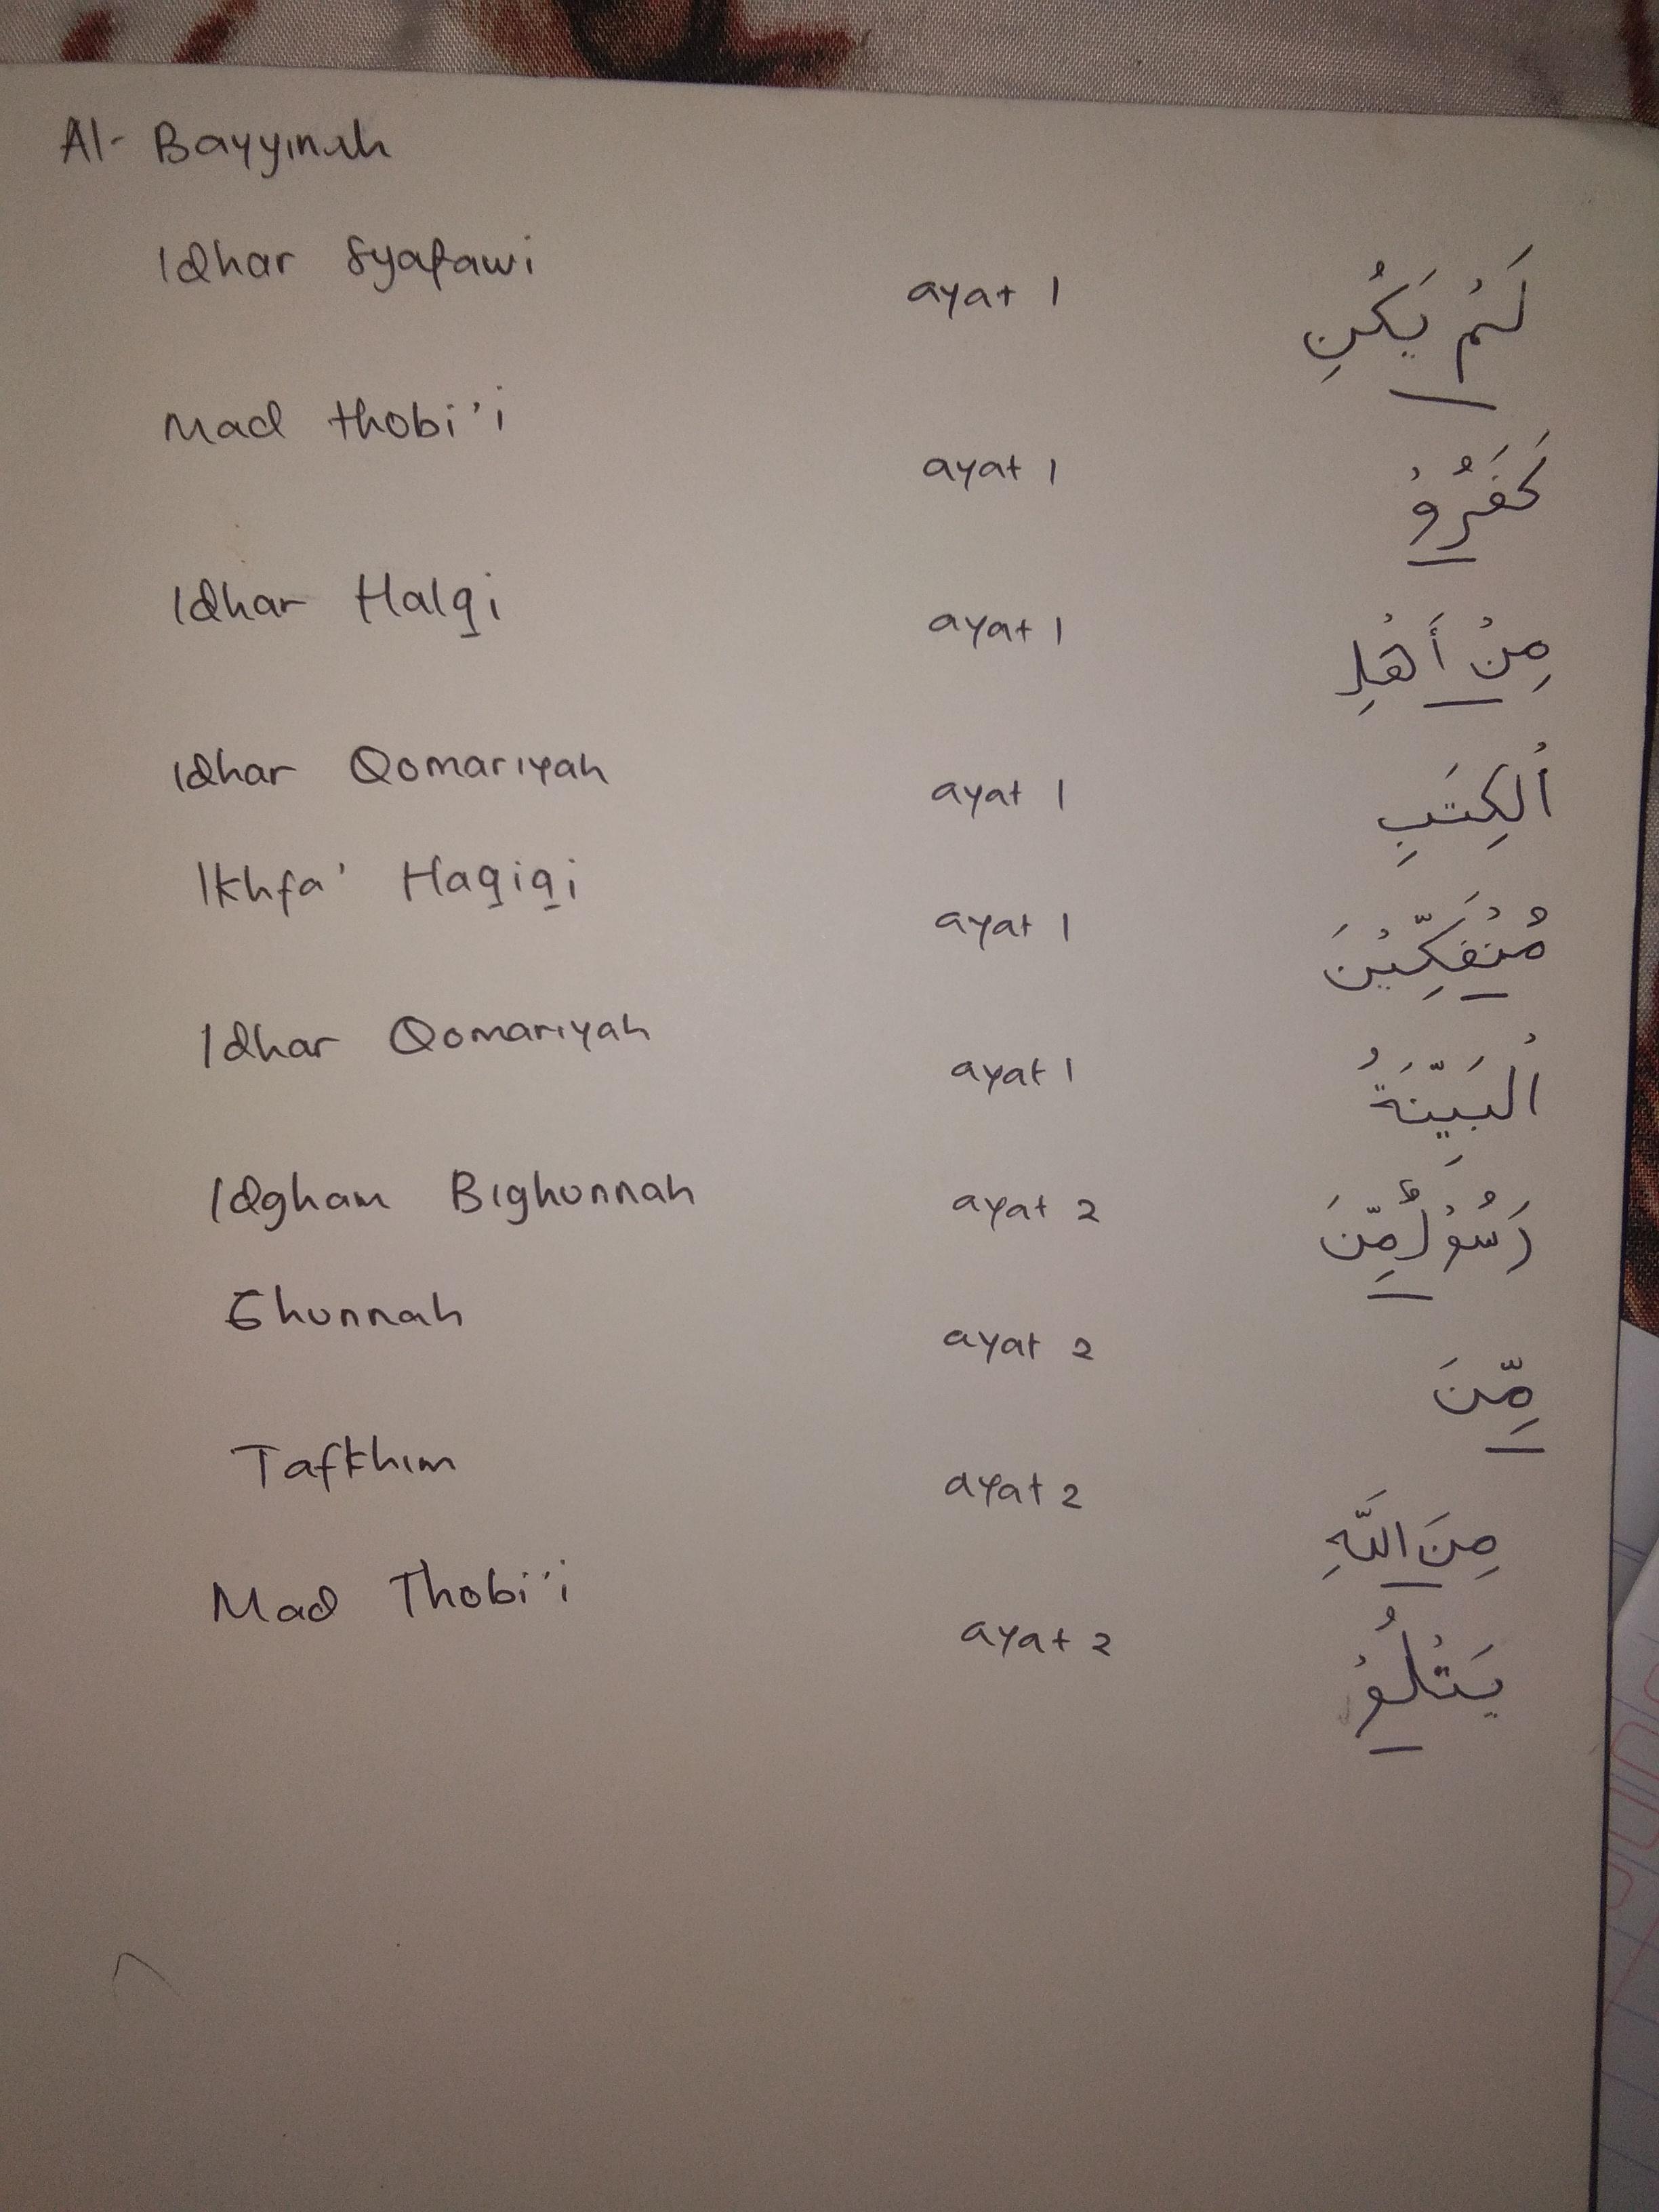 Al- Bayyinah
Idhar Syafawi ayat 1 لَمْ يَكُنِ
Mad thobi'i ayat 1 كَفَرُوْ
Idhar Halqi ayat 1 مِنْ أَهْلِ
Idhar Qomariyah ayat 1 اْلكِتَبِ
Ikhfa' Haqiqi ayat 1 مُنْفَكِّيْنَ
Idhar Qomariyah ayat 1 اْلبَيِّنَةُ
Idgham Bighunnah ayat 2 رَسُوْلٌمِّنَ
Ghunnah ayat 2 مِّنَ
Tafkhim ayat 2 مِنَ اللَّهِ
Mad Thobi'i ayat 2 يَتْلُوْ